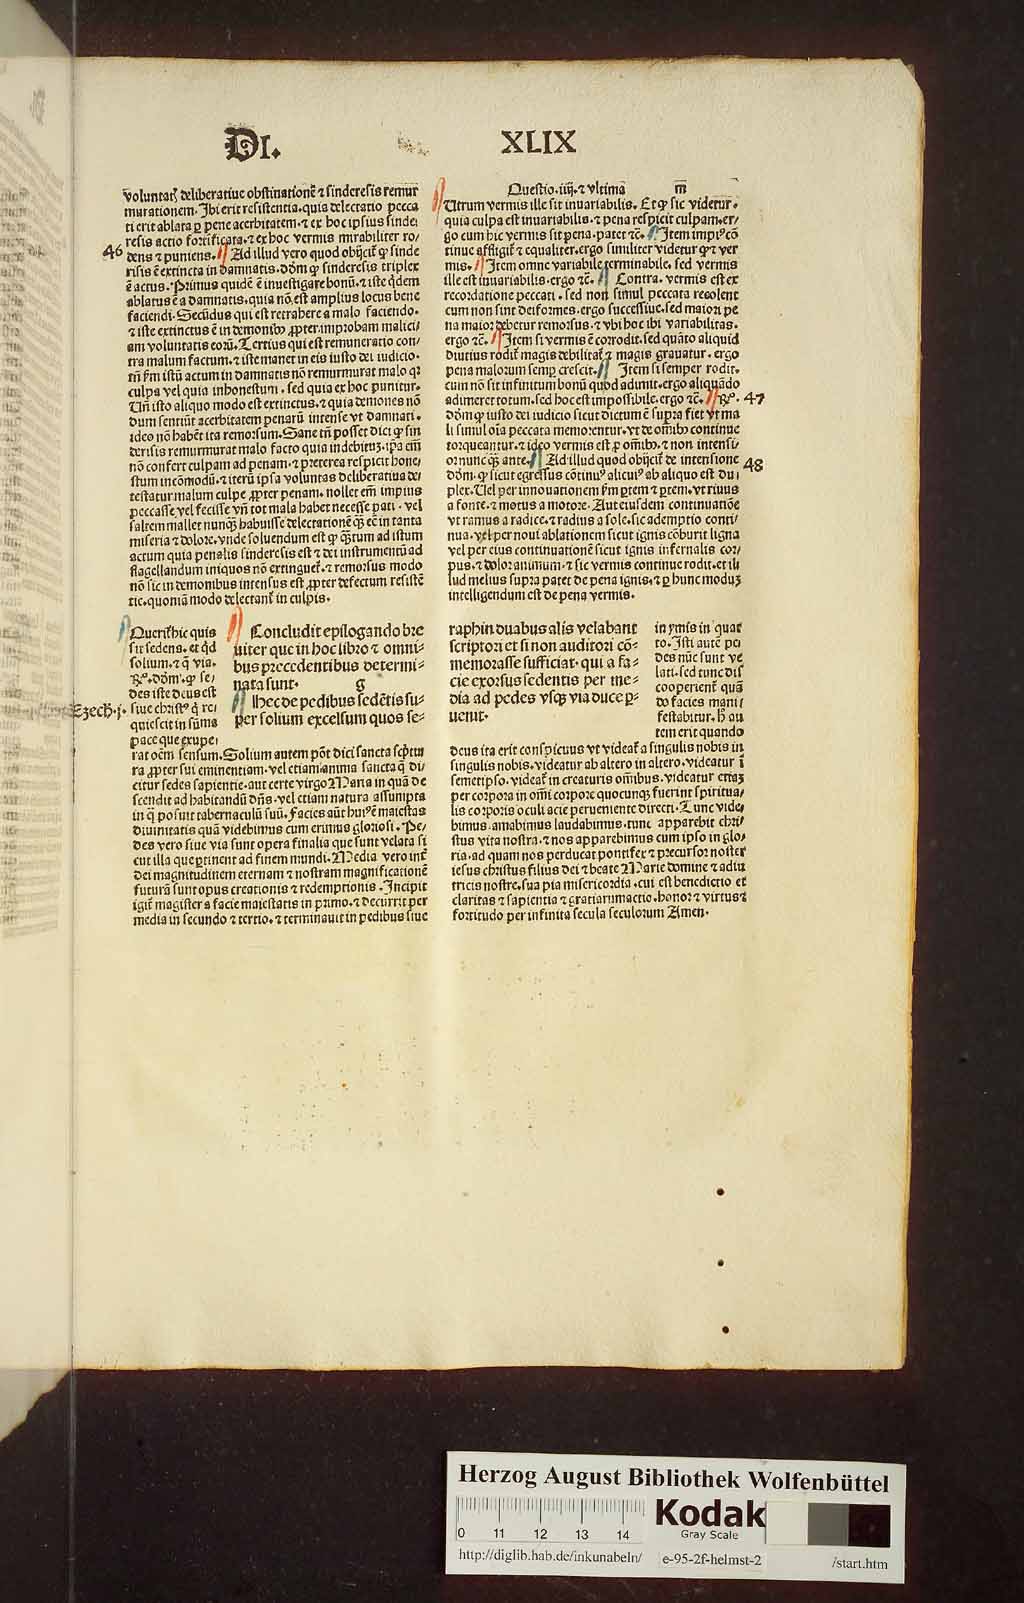 DI.
XLIX
voluntatꝭ deliberatiue obstinationē ⁊ sinderesis remur
murationem. Ibi erit resistentia. quia delectatio pecca
ti erit ablata ꝑ pene acerbitatem. ⁊ ex hoc ipsius sinde
resis actio fortificata. ⁊ ex hoc vermis mirabiliter ro/
46 dens ⁊ puniens. Ad illud vero quod obijcit̉ ꝙ sinde
risis ē extincta in damnatis. dōm ꝙ sinderesis triplex
ē actus. Primus quidē ē inuestigare bonū. ⁊ iste q̇dem
ablatus ē a damnatis. quia nō est amplius locus bene
faciendi. Secūdus qui est retrahere a malo faciendo.
⁊ iste extinctus ē in demonibꝰ ꝓpter improbam malici/
am voluntatis eorū. Tertius qui est remuneratio con/
tra malum factum. ⁊ iste manet in eis iusto dei iudicio.
tn̄ ẜm istū actum in damnatis nō remurmurat malo qꝛ
culpa vel quia inhonestum. sed quia ex hoc punitur.
Un̄ isto aliquo modo est extinctus. ⁊ quia demones nō
dum sentiūt acerbitatem penarū intense vt damnati.
ideo nō habēt ita remorsum. Sane tn̄ posset dici ꝙ sin
derisis remurmurat malo facto quia indebitū. ip̄a em̄
nō confert culpam ad penam. ⁊ preterea respicit hone/
stum incōmodū. ⁊ iterū ipsa voluntas deliberatiua de/
testatur malum culpe ꝓpter penam. nollet em̄ impius
peccasse vel fecisse vn̄ tot mala habet necesse pati. vel
saltem mallet nunqꝫ habuisse delectationē qꝫ eē in tanta
miseria ⁊ dolore. vnde soluendum est ꝙ qꝫtum ad istum
actum quia penalis sinderesis est ⁊ dei instrumentū ad
flagellandum iniquos nō extinguet̉. ⁊ remorsus modo
nō sic in demonibus intensus est. ꝓpter defectum resistē
tie. quoniā modo delectant̉ in culpis.
Querit̉ hic quis
sit sedens. et qd̄
solium. ⁊ q̄ via.
Rn̄. dōm. ꝙ se/
des iste deus est
Ezech.j. siue christꝰ q̇ re/
quiescit in sūma
pace que exupe/
rat oēm sensum. Solium autem pōt dici sancta sc̄ptu
ra ꝓpter sui eminentiam. vel etiam anima sancta q̄ di/
citur sedes sapientie. aut certe virgo Maria in quā de
scendit ad habitandū dn̄s. vel etiam natura assumpta
in q̄ posuit tabernaculū suū. Facies aūt huiꝰ ē maiestas
diuinitatis quā videbimus cum erimus gloriosi. Pe/
des vero siue via sunt opera finalia que sunt velata si
cut illa que ꝑtinent ad finem mundi. Media vero int̉
dei magnitudinem eternam ⁊ nostram magnificationē
futurā sunt opus creationis ⁊ redemptionis. Incipit
igit̉ magister a facie maiestatis in primo. ⁊ decurrit per
media in secundo ⁊ tertio. ⁊ terminauit in pedibus siue
Concludit epilogando bre
uiter que in hoc libro ⁊ omni-
bus precedentibus determi-
nata sunt. g
Hec de pedibus sedētis su-
per solium excelsum quos se-
Questio. iiij. ⁊ vltima m̄
Utrum vermis ille sit inuariabilis. Et ꝙ sic videtur.
quia culpa est inuariabilis. ⁊ pena respicit culpam. er/
go cum hic vermis sit pena. patet ⁊c̄. Item impiꝰ cō
tinue affligit̉ ⁊ equaliter. ergo similiter videtur ꝙ ⁊ ver
mis. Item omne variabile terminabile. sed vermis
ille est inuariabilis. ergo ⁊c̄. Contra. vermis est ex
recordatione peccati. sed non simul peccata recolent
cum non sint deiformes. ergo successiue. sed maiori pe
na maior debetur remorsus. ⁊ vbi hoc ibi variabilitas.
ergo ⁊c̄. Item si vermis ē corrodit. sed quāto aliquid
diutius rodit̉ magis debilitat̉ ⁊ magis grauatur. ergo
pena malorum semꝑ crescit. Item si semper rodit.
cum nō sit infinitum bonū quod adimit. ergo aliquādo
adimeret totum. sed hoc est impossibile. ergo ⁊c̄. Rn̄. 47
dōm ꝙ iusto dei iudicio sicut dictum ē supra fiet vt ma
li simul oīa peccata memorentur. vt de om̄ibꝰ continue
torqueantur. ⁊ ideo vermis est ꝓ om̄ibꝰ. ⁊ non intensi/
or nunc qꝫ ante. Ad illud quod obijcit̉ de intensione 48
dōm. ꝙ sicut egressus cōtinuꝰ alicuiꝰ ab aliquo est du/
plex. Uel per innouationem ẜm ꝑtem ⁊ ꝑtem. vt riuus
a fonte. ⁊ motus a motore. Aut eiusdem continuatiōe
vt ramus a radice. ⁊ radius a sole. sic ademptio conti/
nua. vel per noui ablationem sicut ignis cōburit ligna
vel per eius continuationē sicut ignis infernalis cor/
pus. ⁊ dolor animum. ⁊ sic vermis continue rodit. et il/
lud melius supra patet de pena ignis. ⁊ ꝑ hunc moduꝫ
intelligendum est de pena vermis.
raphin duabus alis velabant
scriptori et si non auditori cō-
memorasse sufficiat. qui a fa-
cie exorsus sedentis per me-
dia ad pedes vsqꝫ via duce ꝑ-
uenit.
in ymis in quar
to. Isti autē pe/
des nūc sunt ve
lati. sed tunc dis
cooperient̉ quā
do facies mani/
festabitur. H̄ au
tem erit quando
deus ita erit conspicuus vt videat̉ a singulis nobis in
singulis nobis. videatur ab altero in altero. videatur ī
semetipso. videat̉ in creaturis om̄ibus. videatur etiaꝫ
per corpora in om̄i corpore quocunqꝫ fuerint spiritua/
lis corporis oculi acie perueniente directi. Tunc vide/
bimus. amabimus laudabimus. tunc apparebit chri/
stus vita nostra. ⁊ nos apparebimus cum ipso in glo/
ria. ad quam nos perducat pontifex ⁊ precursor noster
iesus christus filius dei ⁊ beate Marie domine ⁊ adiu
tricis nostre. sua pia misericordia. cui est benedictio et
claritas ⁊ sapientia ⁊ gratiarumactio. honor ⁊ virtus ⁊
fortitudo per infinita secula seculorum Amen.
Herzog August Bibliothek Wolfenbüttel
0 11 12 13 14
Kodak
Gray Scale
http://diglib.hab.de/inkunabeln/ e-95-2f-helmst-2 /start.htm